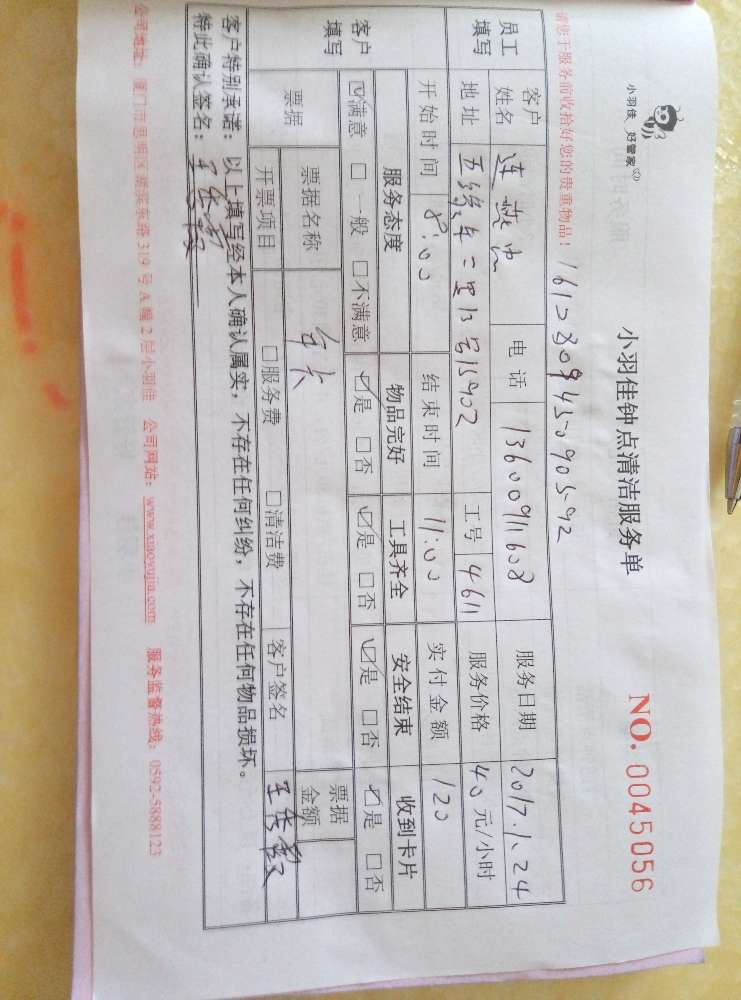 小羽佳 好管家
小羽佳钟点清洁服务单
NO. 0045056
请您于服务前收拾好您的贵重物品！
员工填写 客户姓名 连 电话 13600911608 服务日期 2017.1.24
地址 五缘 二里13号 工号 4611 服务价格 40元/小时
开始时间 8:00 结束时间 11:00 实付金额 120
客户填写 服务态度 物品完好 工具齐全 安全结束 收到卡片
☑满意 □一般 □不满意 ☑是 □否 ☑是 □否 ☑是 □否 ☑是 □否
票据 票据名称 年卡 票据金额
开票项目 □服务费 □清洁费 客户签名 王
客户特别承诺：以上填写经本人确认属实，不存在任何纠纷，不存在任何物品损坏。
特此确认签名：王
公司地址：厦门市思明区湖滨东路319号A幢2层小羽佳 公司网站：www.xiaoyujia.com 服务监督热线：0592-5888123